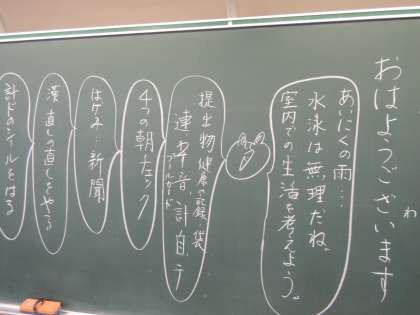 おはようございます
わ
あいにくの雨…
水泳は無理だね。
室内での生活を考えよう。
提出物(健康の記録・袋
プールカード
連・本・音・計・自・テ
4つの朝チェック
はげみ…新聞
漢直しの直しをやる
計ドのシールをはる